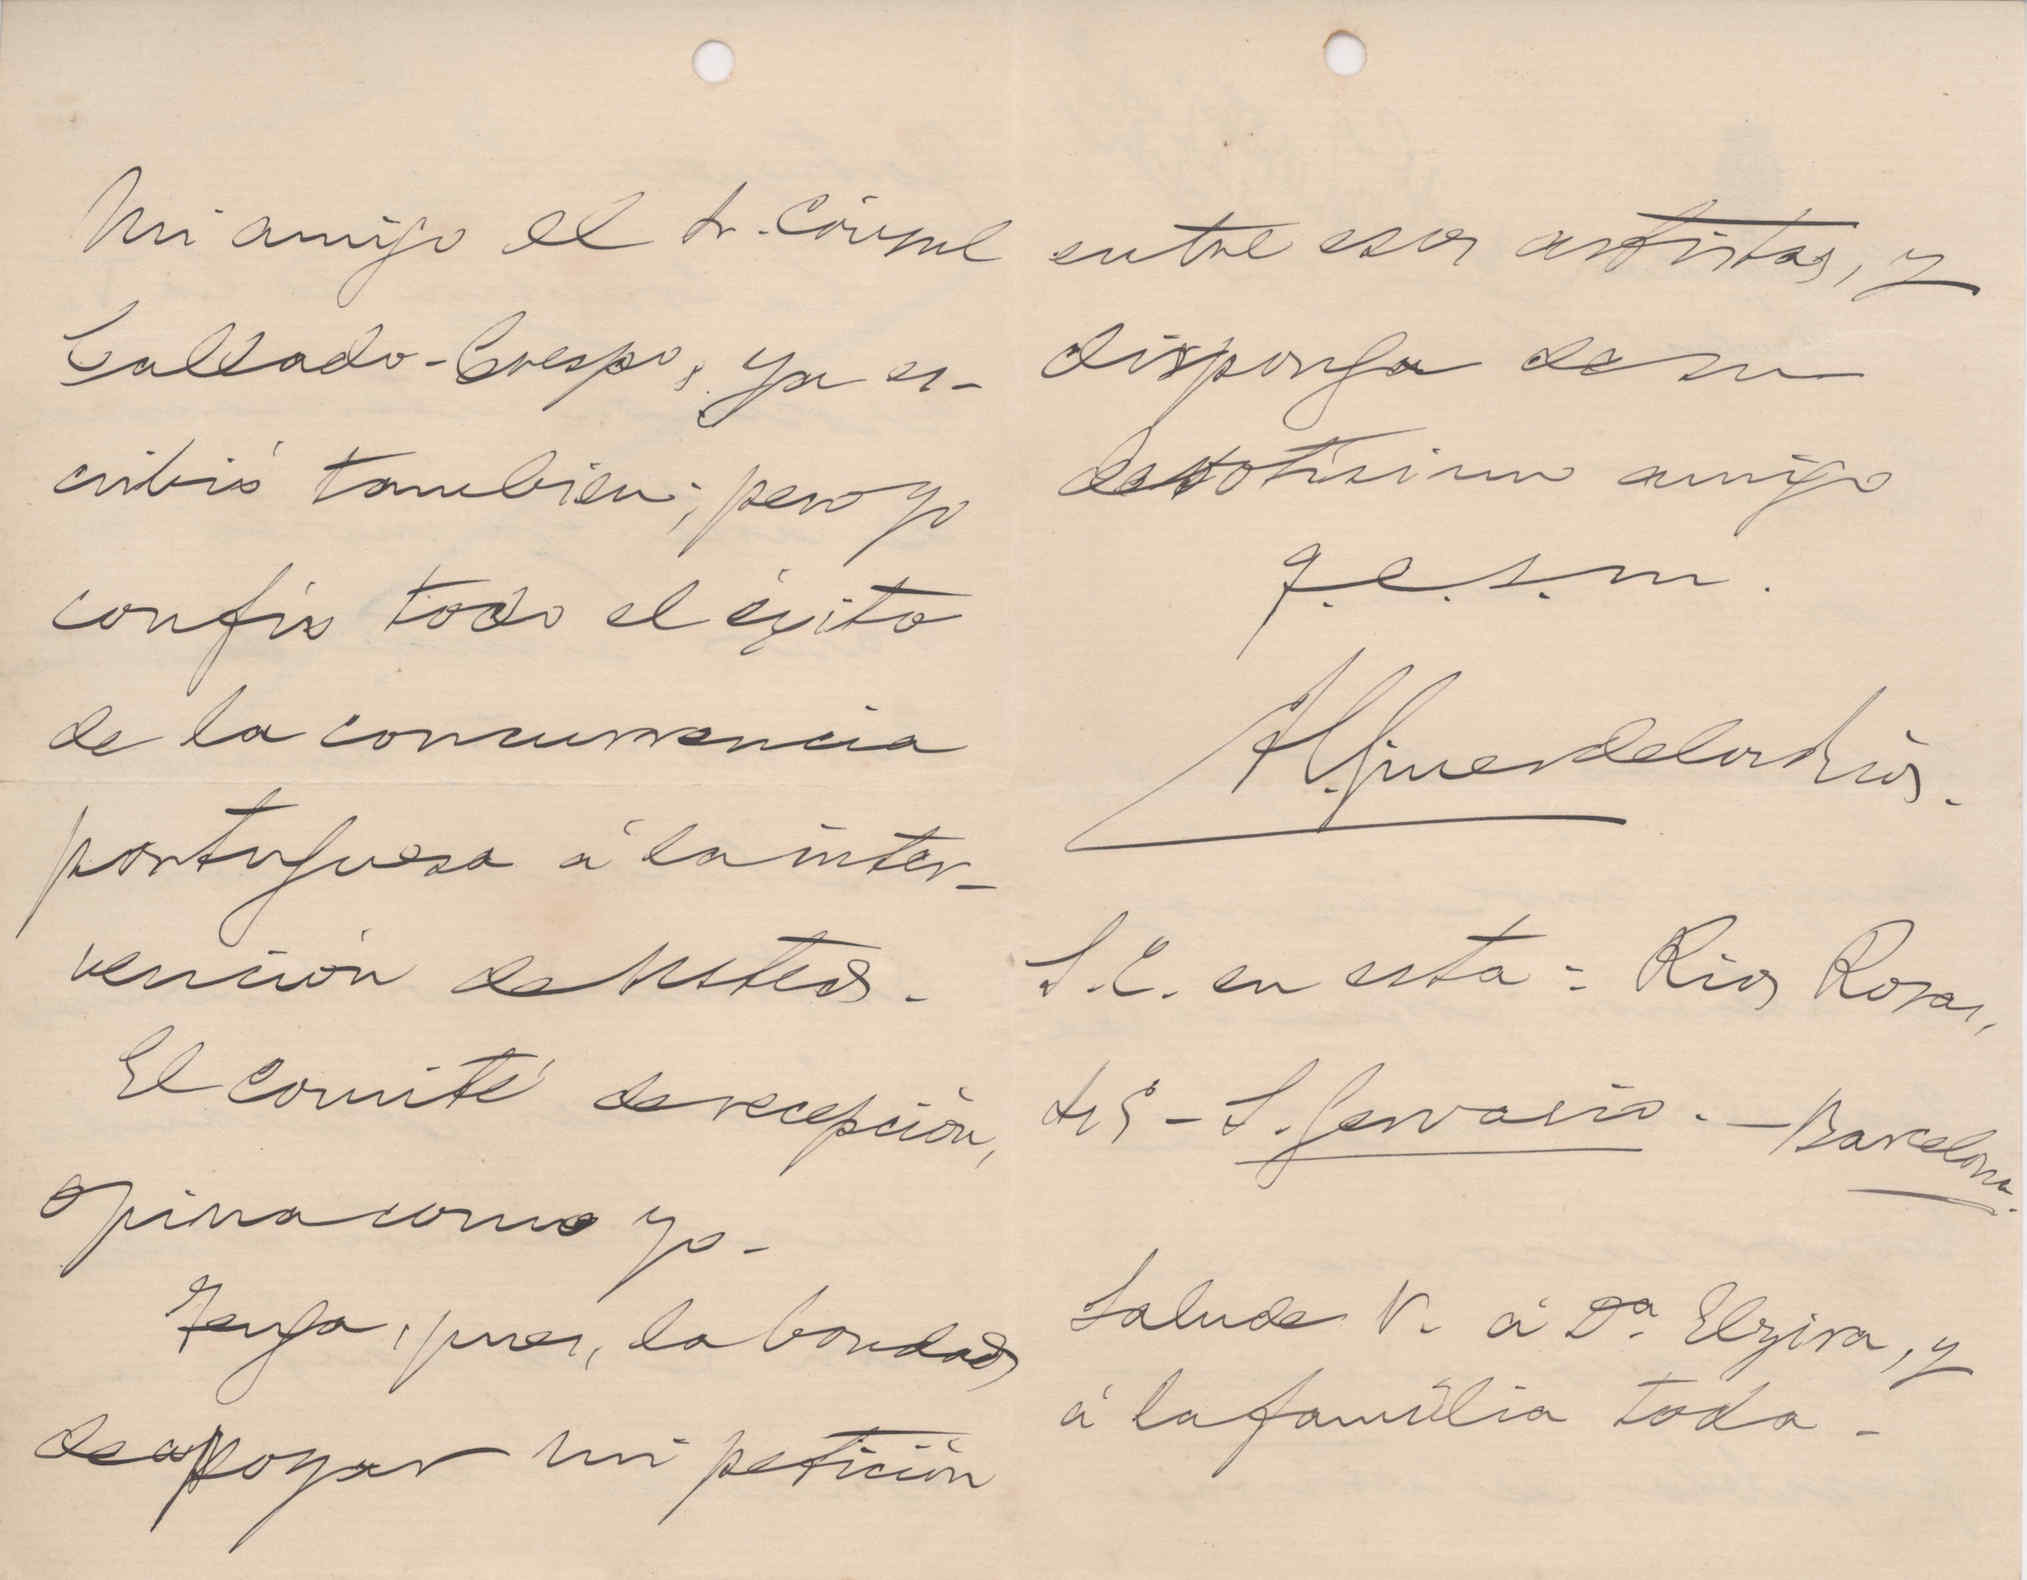 Mi amigo el Sr. Cónsul
Callado-Crespo, ya es-
cribió tambien; pero yo
confío todo el éxito
de la concurrencia
portuguesa á la inter-
vención de Usted.
El Comité de recepción,
opina como yo.
Tenga, pues, la bondad
de apoyar mi petición
entre esos artistas, y
disponga de su
devotísimo amigo
q.e.s.m.
H. Giner de los Ríos.
S.C. en esta = Rios Rosas,
S. Gervasio. - Barcelona.
Salude V. á Dª. Elzira, y
á la família toda.